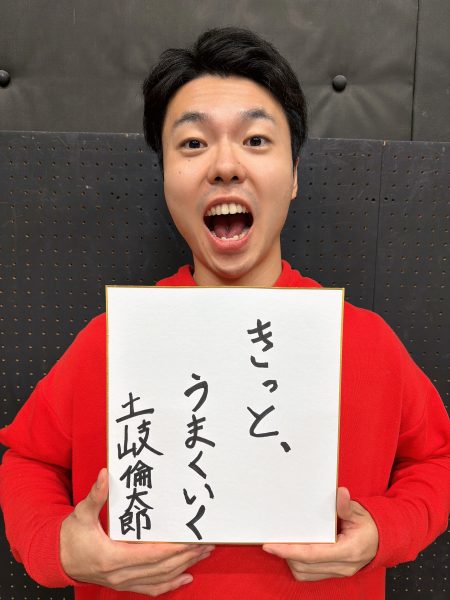 きっと、
うまくいく
土岐倫太郎